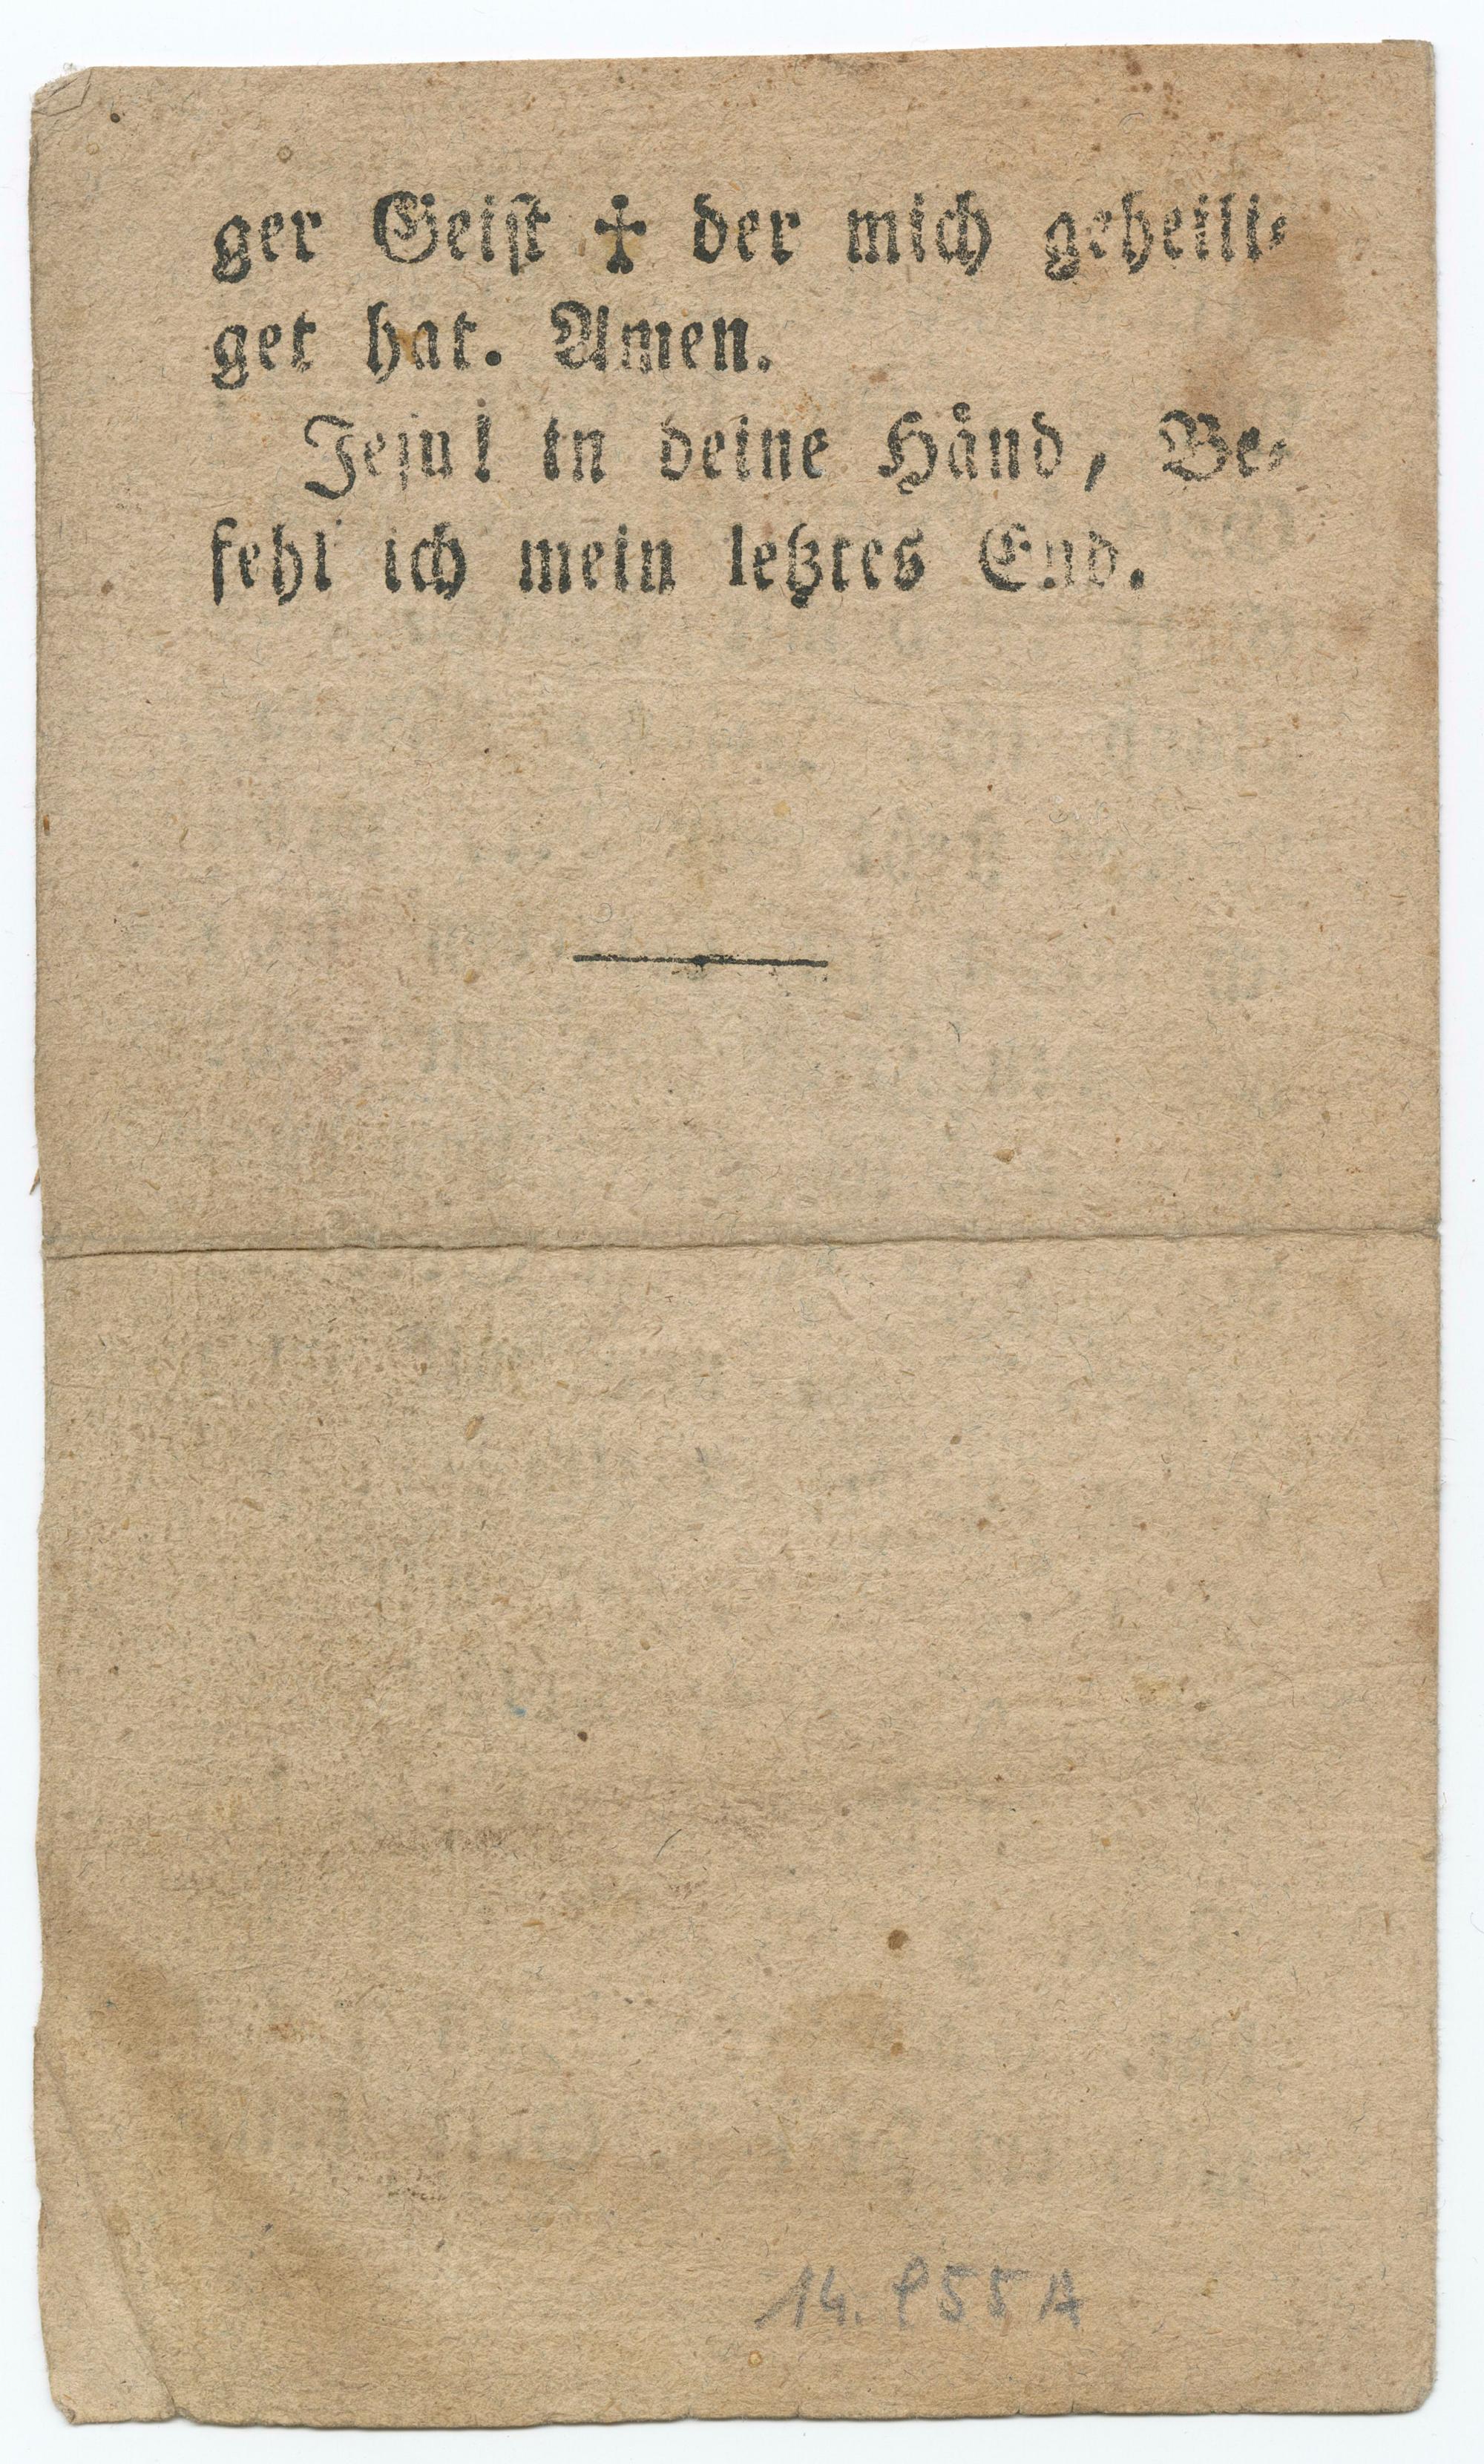 ger Geiſt ✠ der mich geheili⸗
get hat. Amen.
Jeſu! in deine Händ, Be⸗
fehl ich mein letztes End.
14.955A